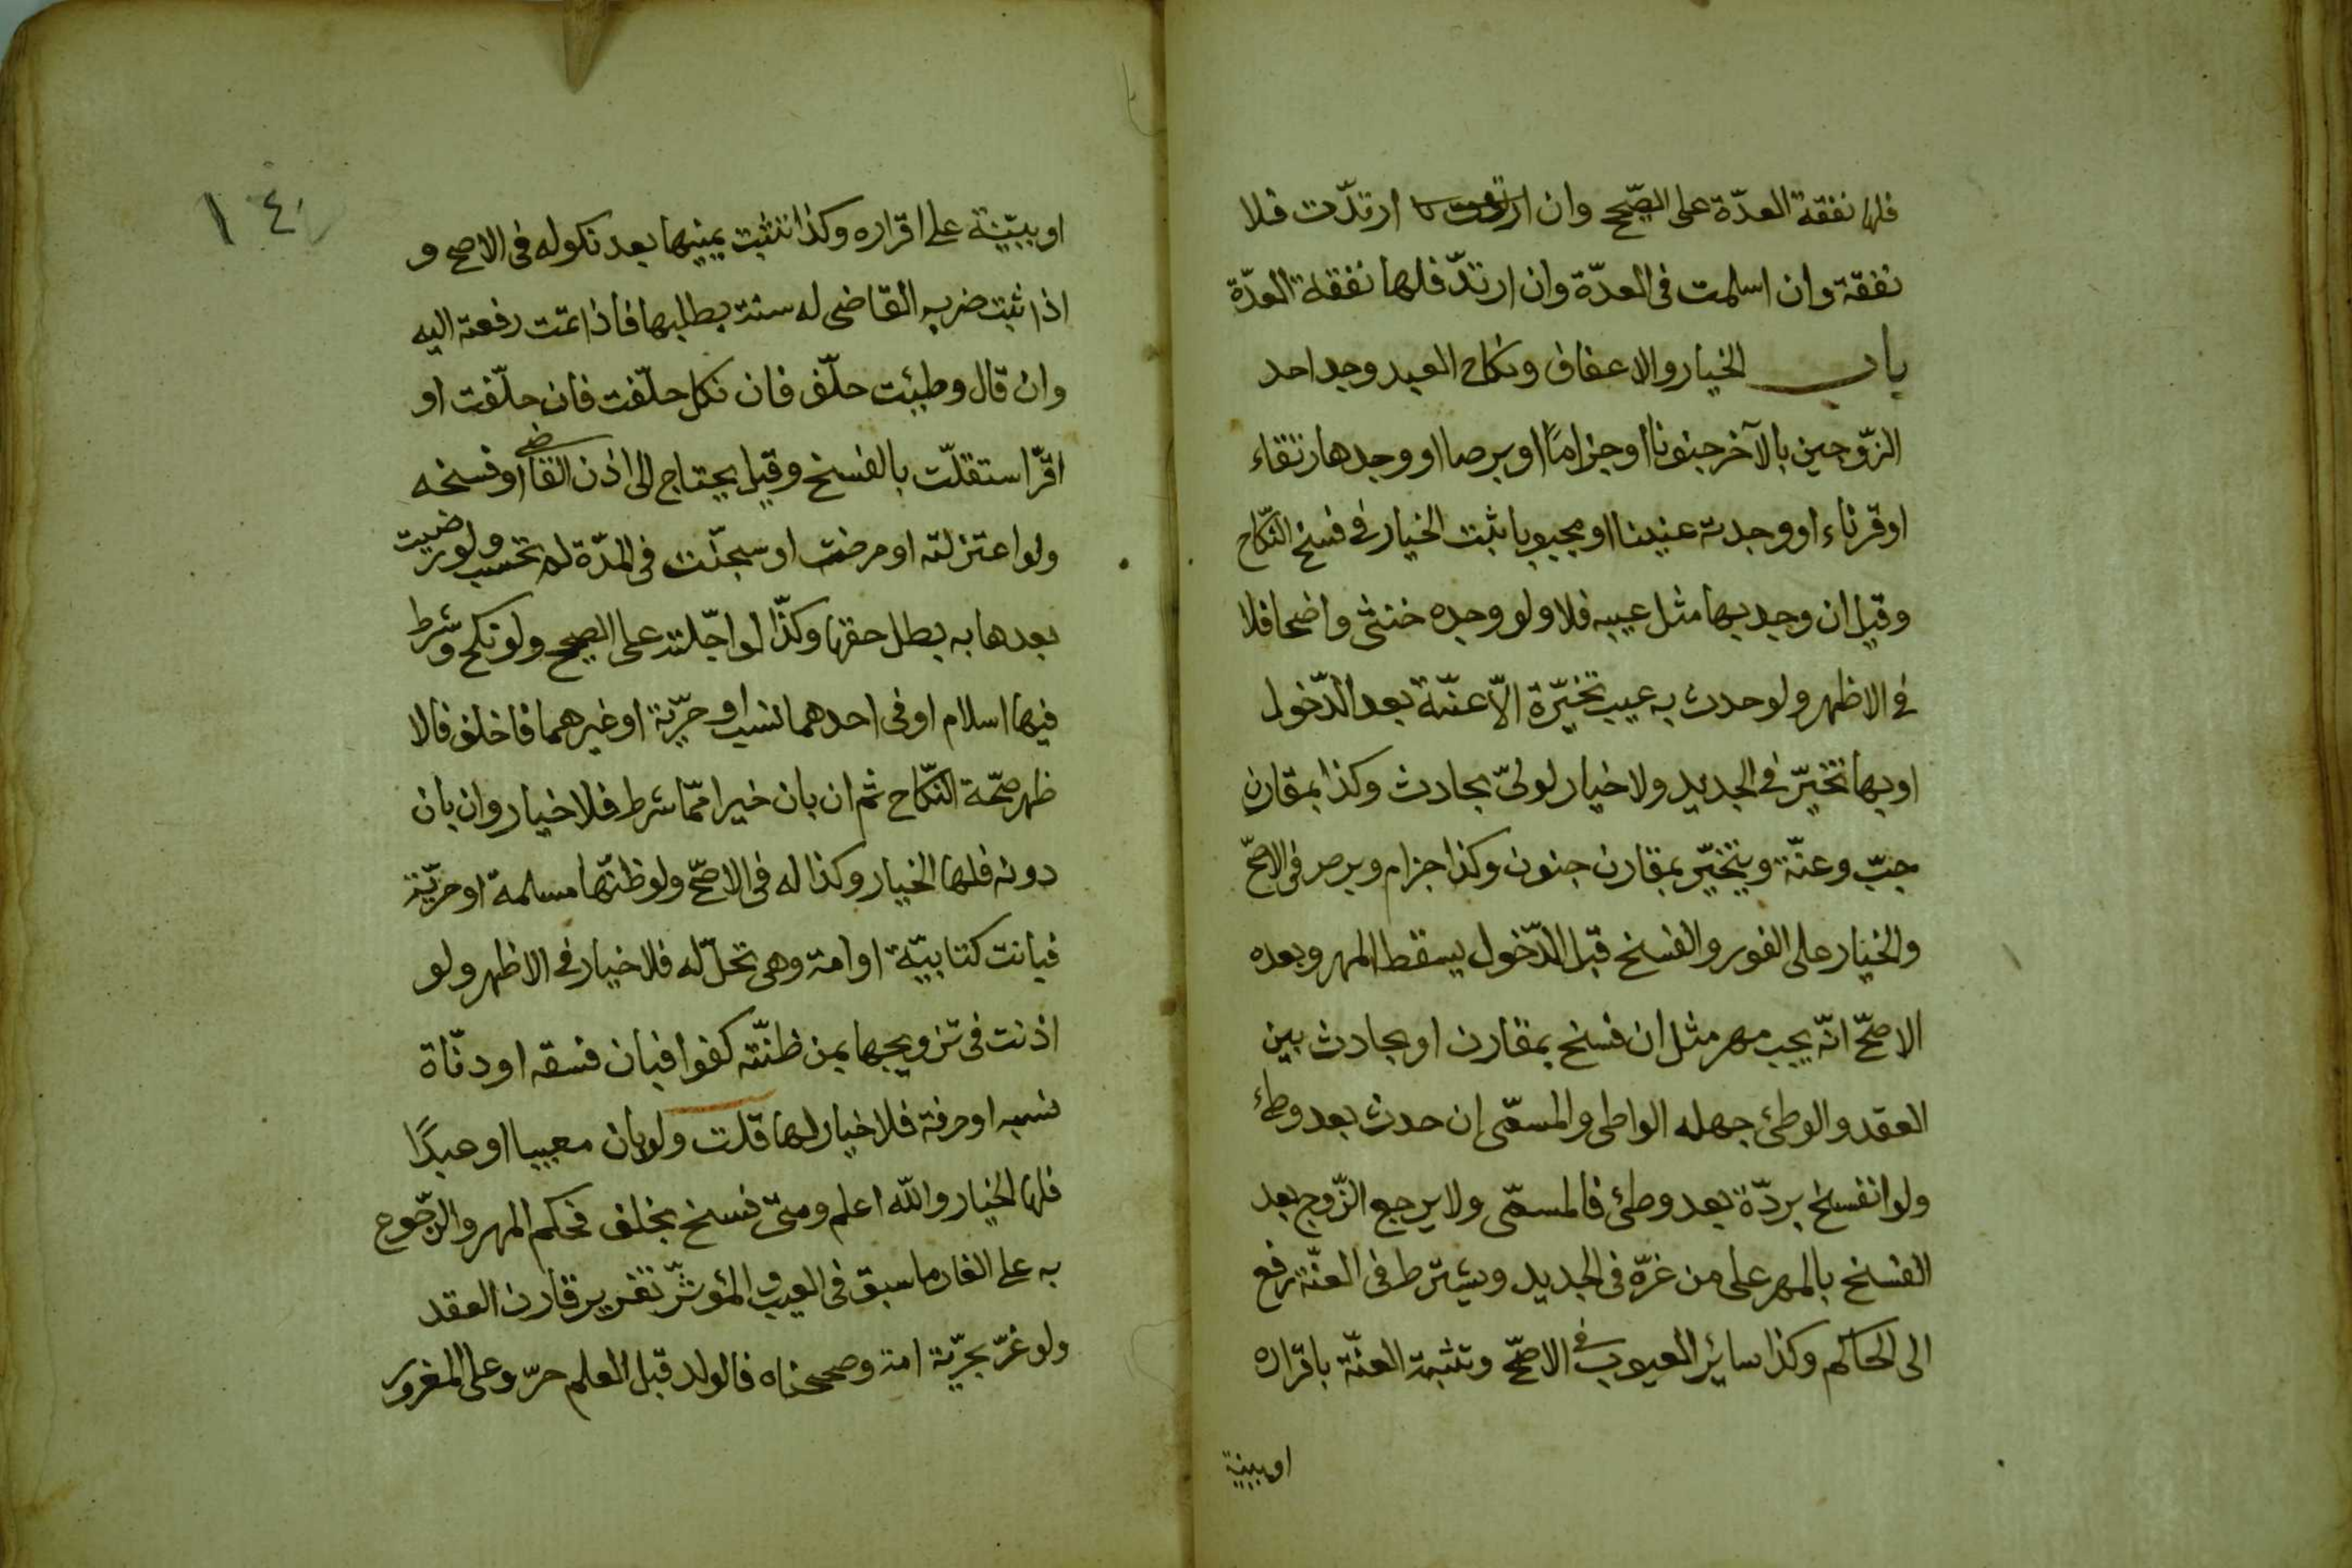 فلها نفقة العدّة على الصّحيح وان ارتدّت فلا
نفقة وان اسلمت فى العدّة وان ارتدّ فلها نفقة العدّة
باب الخيار والاعفاف ونكاح العبد وجد احد
الزّوجين بالآخر جنونا او جزامًا او برصا او وجدها رتقاء
او قرناء او وجدته عنينا او مجبوبا ثبت الخيار فى فسخ النّكاح
وقيل ان وجد بها مثل عيبه فلا ولو وجده خنثى واضحا فلا
فى الاظهر ولو حدث به عيب تخيّرة الاّ عنّة بعد الدّخول
او بها تخيّر فى الجديد ولا خيار لولىّ بحادث وكذا بمقارن
جبّ وعنّة ويتخيّر بمقارن جنون وكذا جزام وبرص فى الاصحّ
والخيار على الفور والفسخ قبل الدّخول يسقط المهر وبعده
الاصحّ انّه يجب مهر مثل ان فسخ بمقارن او بحادث بين
العقد والوطئ جهله الواطى والمسمّى إن حدث بعد وطئ
ولو انفسخ بردّة بعد وطئ فالمسمّى ولا يرجع الزّوج بعد
الفسخ بالمهر على من غرّه فى الجديد ويشترط فى العنّة رفع
الى الحاكم وكذا سائر العيوب فى الاصحّ وتثبت العنّة باقراره
او ببينة
١٤
او ببيّنة على اقراره وكذا تثبت بيمينها بعد نكوله فى الاصح و
اذا ثبت ضرب القاضى له سنة بطلبها فاذا تمّت رفعته اليه
وان قال وطيئت حلّف فان نكل حلّفت فان حلّفت او
اقرّ استقلّت بالفسخ وقيل يحتاج الى اذن القاضى او فسخه
ولو اعتزلته او مرضت او سجنت فى المدّة لم تحسب ولو رضيت
بعدها به بطل حقها وكذا لو اجّلته على الصحيح ولو نكح وشرط
فيها اسلام او فى احدهما نسب او حرّيّة او غيرهما فاخلف فالا
ظهر صحّة النّكاح ثم ان بان خيرا ممّا شرط فلا خيار وان بان
دونه فلها الخيار وكذا له فى الاصحّ ولو ظنّها مسلمة او حرّيّة
فبانت كتابيّة او امة وهى تحلّ له فلا خيار فى الاظهر ولو
اذنت فى تزويجها بمن ظنّته كفوا فبان فسقه او دنّاة
نسبه او حرفة فلا خيار لها قلت ولو بان معيبا او عبدًا
فلها الخيار والله اعلم ومتى فسخ بخلف فحكم المهر والرّجوع
به على الغار ما سبق فى العيب والمؤثّر تغرير قارن العقد
ولو غرّ بحرّيّة امة وصححناه فالولد قبل العلم حرّ وعلى المغرور